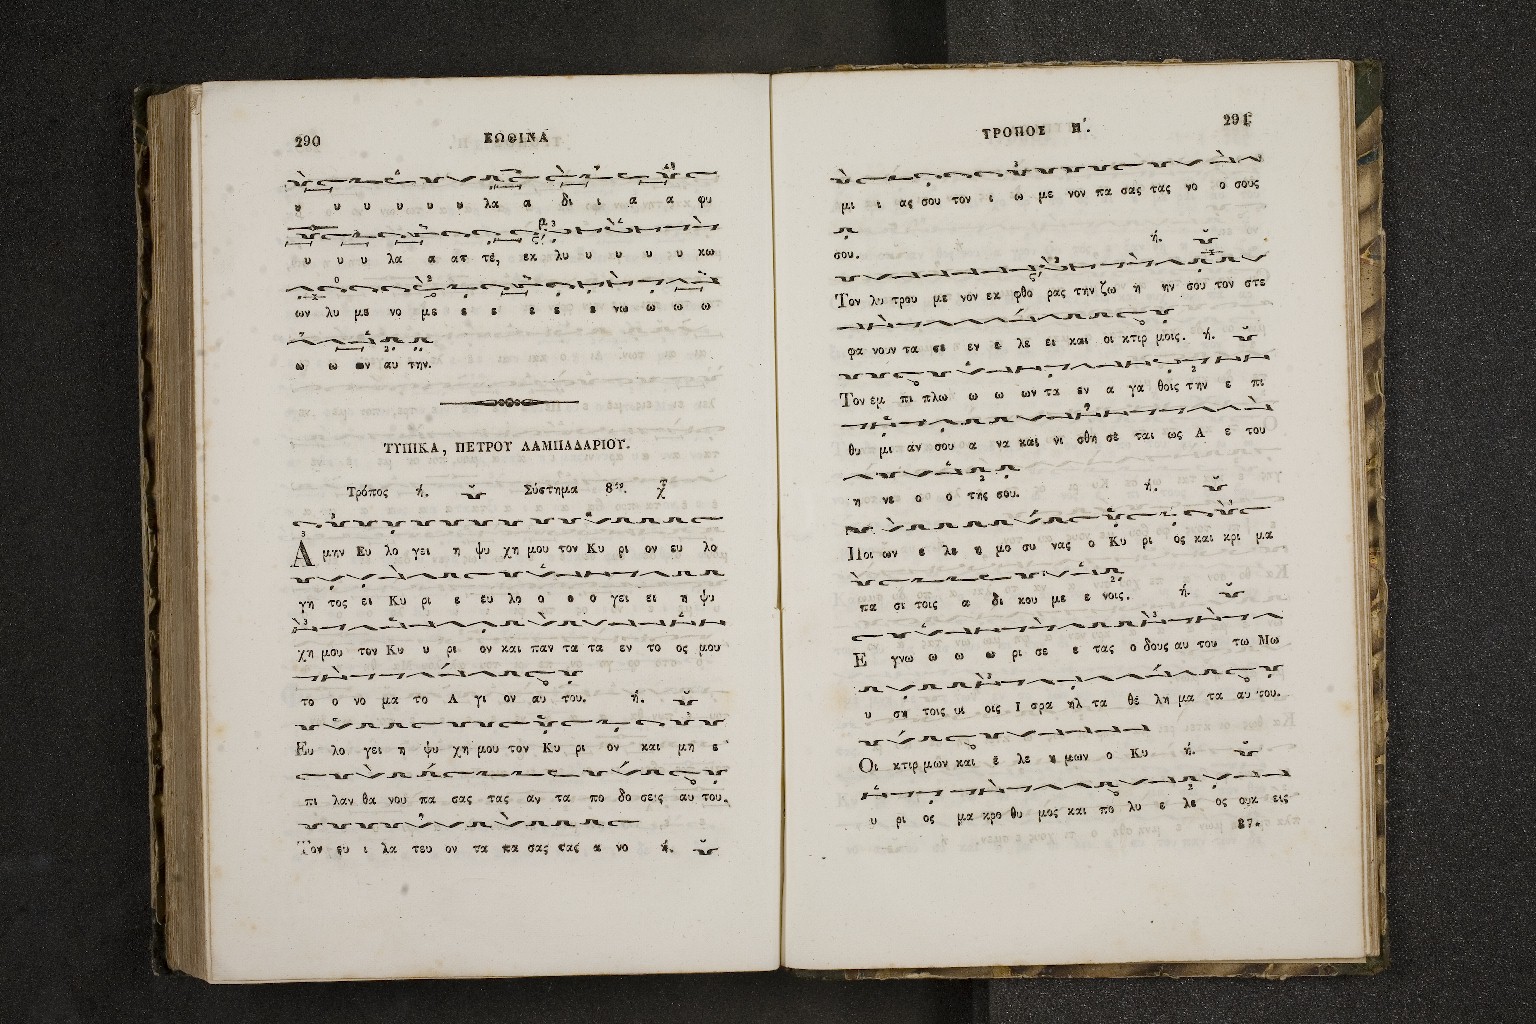 290
ΕΩΘΙΝΑ
υ υ υ υ υ υ λα α δι ι α α φυ
υ υ υ λα α ατ τέ, εκ λυ υ υ υ υ κω
ων λυ με νο με ε ε ε ε ε νω ω ω ω
ω ω ων αυ την.
ΤΥΠΙΚΑ, ΠΕΤΡΟΥ ΛΑΜΠΑΔΑΡΙΟΥ.
Τρόπος ή. Σύστημα 8
Α μην Ευ λο γει η ψυ χη μου τον Κυ ρι ον ευ λο
γη τος ει Κυ ρι ε ευ λο ο ο ο γει ει η ψυ
χη μου τον Κυ υ ρι ον και παν τα τα εν το ος μου
το ο νο μα το Α γι ον αυ του. ή.
Ευ λο γει η ψυ χη μου τον Κυ ρι ον και μη ε
πι λαν θα νου πα σας τας αν τα πο δο σεις αυ του.
Τον ευ ι λα τευ ον τα πα σας τας α νο ή.
ΤΡΟΠΟΣ Η΄.
291
μι ι ας σου τον ι ω με νον πα σας τας νο ο σους
σου. ή.
Τον λυ τρου με νον εκ φθο ρας την ζω η ην σου τον στε
φα νουν τα σε εν ε λε ει και οι κτιρ μοις. ή.
Τον εμ πι πλω ω ω ων τα εν α γα θοις την ε πι
θυ μι αν σου α να και νι σθη σε ται ως Α ε του
η νε ο ο της σου. ή.
Ποι ων ε λε η μο συ νας ο Κυ ρι ος και κρι μα
πα σι τοις α δι κου με ε νοις. ή.
Ε γνω ω ω ω ρι σε ε τας ο δους αυ του τω Μω
υ ση τοις υι οις Ι σρα ηλ τα θε λη μα τα αυ του.
Οι κτιρ μων και ε λε η μων ο Κυ ή.
υ ρι ος μα κρο θυ μος και πο λυ ε λε ος ουκ εις
37.